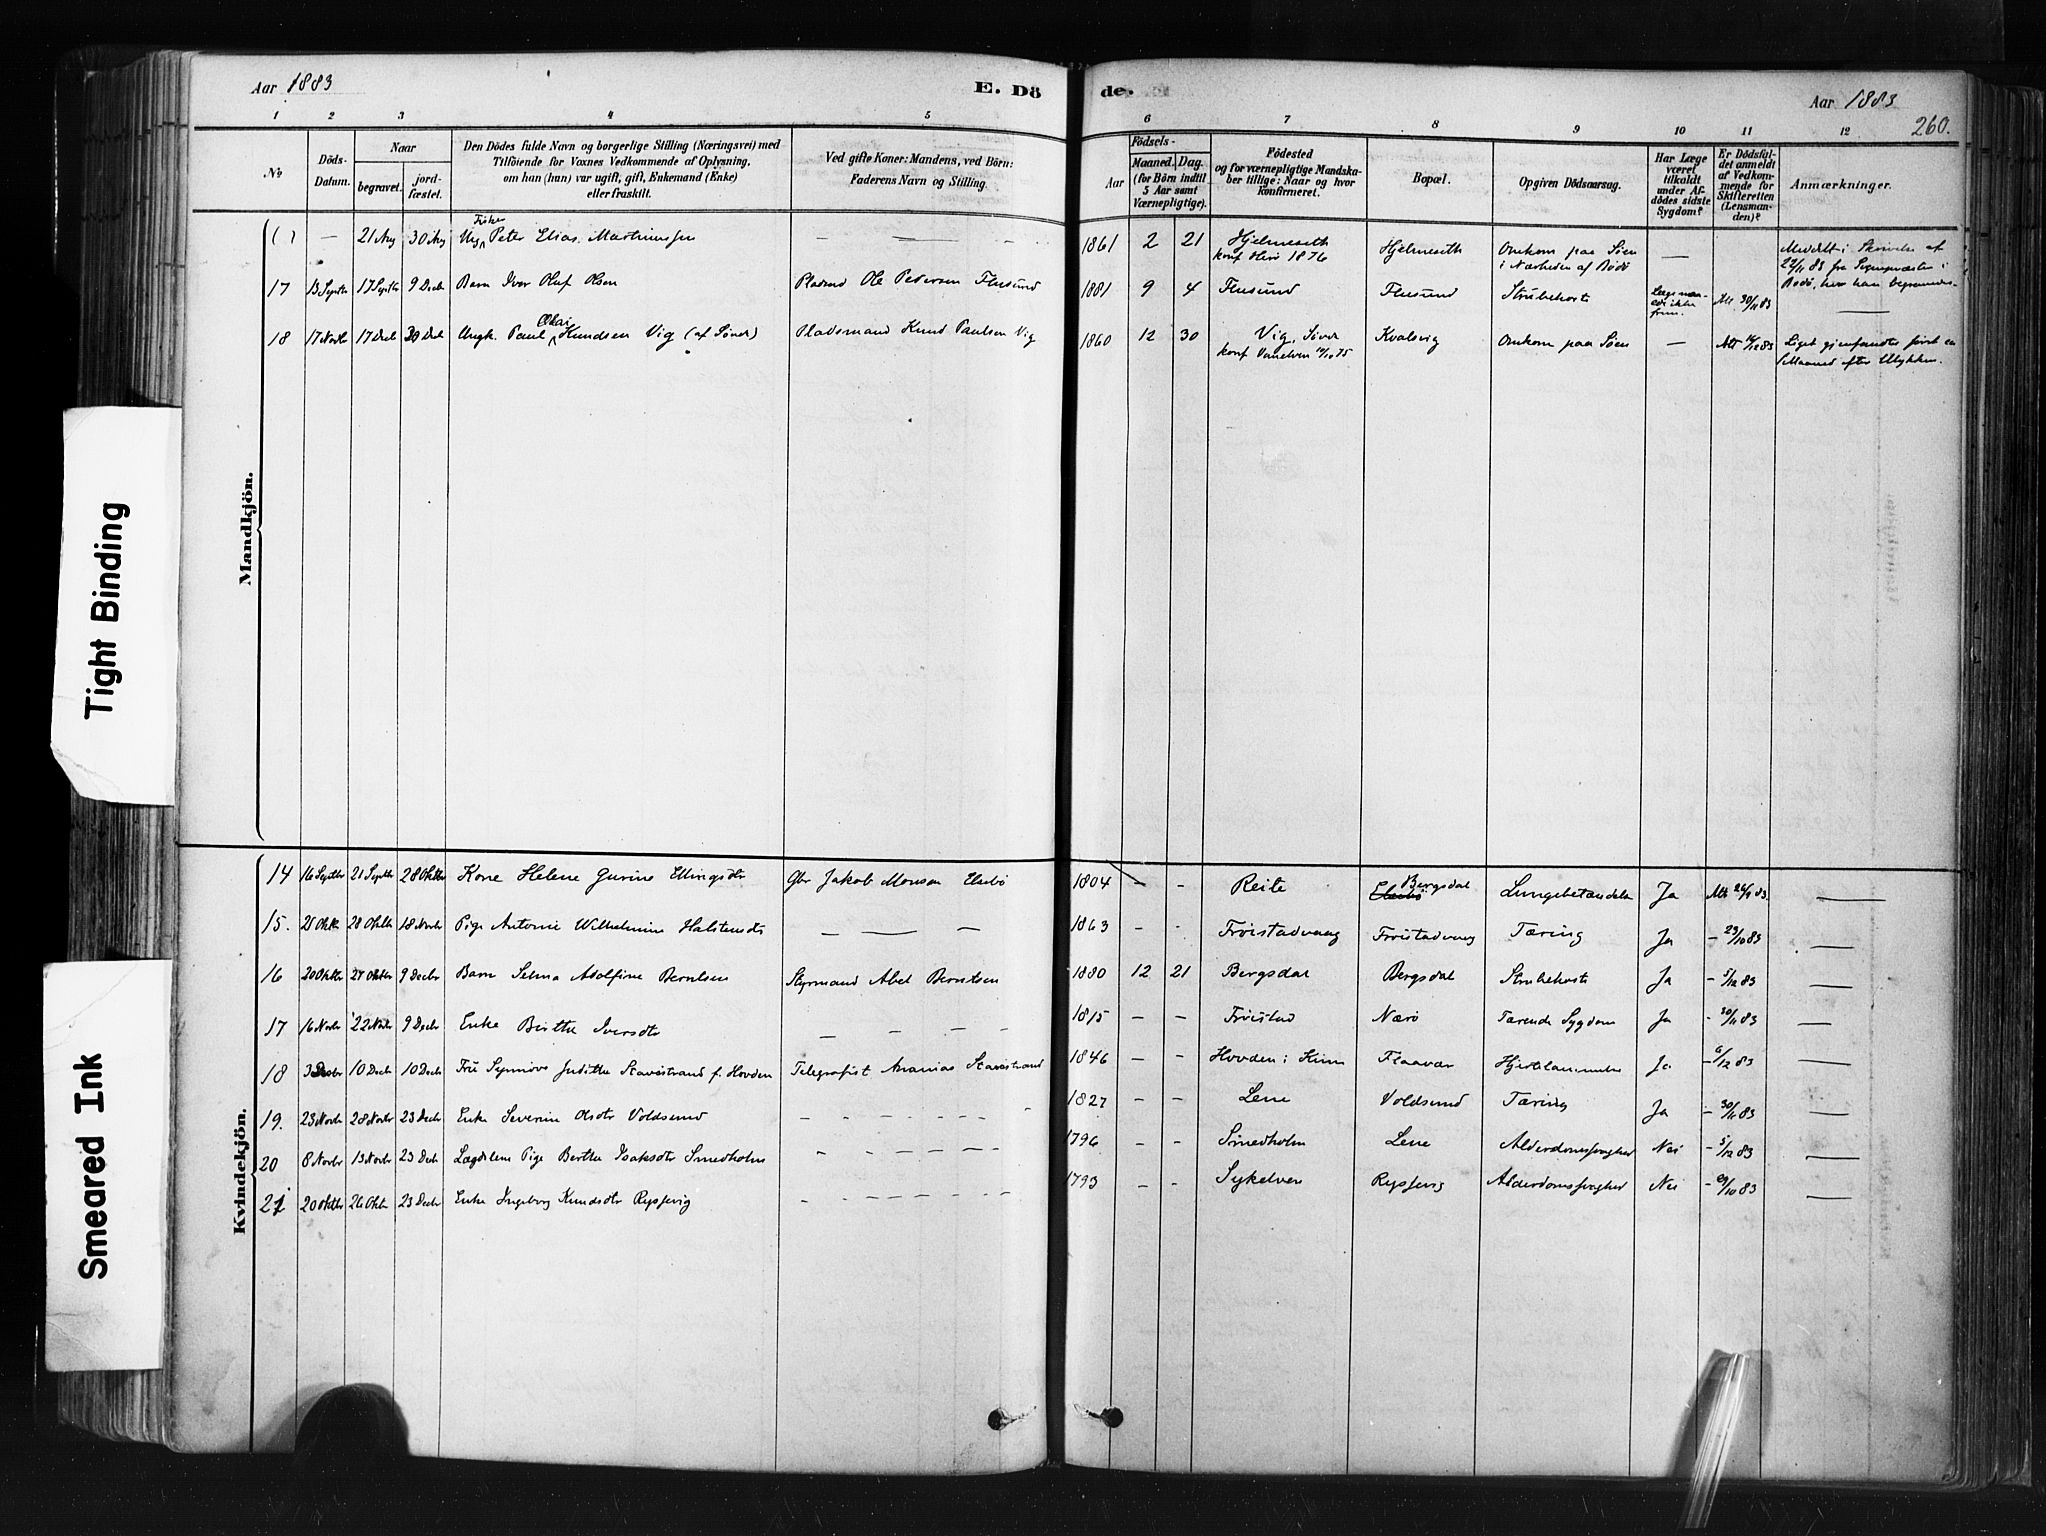 Aar 1883
E. Dö
de.
Aar 1883
260.
1 2 3 4 5 6 7 8 9 10 11 12
№
Döds-
Datum.
Naar
begravet.
jord-
fæstet.
Den Dödes fulde Navn og borgerlige Stilling (Næringsvei) med
Tilföiende for Voxnes Vedkommende af Oplysning,
om han (hun) var ugift, gift, Enkemand (Enke)
eller fraskilt.
Ved gifte Koner: Mandens, ved Börn:
Faderens Navn og Stilling.
Födsels-
Aar
Maaned. Dag.
(for Börn indtil
5 Aar samt
Værnepligtige).
Födested
og for værnepligtige Mandska-
ber tillige: Naar og hvor
konfirmeret.
Bopæl.
Opgiven Dödsaarsag.
Har Læge
været
tilkaldt
under Af-
dödes sidste
Sygdom?
Er Dödsfal-
det anmeldt
af Vedkom-
mende for
Skifteretten
(Lensman-
den)?
Anmærkninger.
Mandkjön.
( ) — 21 Aug 30 Aug Ung Fisker Peter Elias Martinussen — — — 1861 2 21 Hjelmeseth Hjelmeseth Omkom paa Söen —
konf Herö 1876 i Nærheden af Bodö
Meddelt i Skrivelse af
fra Sognepræsten i
Bodö, hvor han begravedes.
17 13 Septbr 17 Septbr 9 Decbr Barn Ivar Oluf Olsen Pladsmd Ole Pedersen Flusund 1881 9 4 Flusund Flusund Strubehoste Att 30/11 83 —
18 17 Novbr 17 Decb 30 Decb Ungk. Paul Knudsen Vig (af Sövde) Pladsmand Knud Paulsen Vig 1860 12 30 Vig, Sövde Kvalsvig Omkom paa Söen — Att 83 Liget gjenfandtes först en
konf Vanelven 75 Maaned efter Ulykken.
Kvindekjön.
14 16 Septbr 21 Septbr 28 Oktbr Kone Helene Gurine Ellingsdtr Gbr Jakob Monsen Elsebö 1804 — - Reite Bergsdal Lungebetændelse Ja Att 83. —
15. 25 Oktb 28 Oktbr 18 Novbr Pige Antonie Wilhelmine Halstensdtr — — — 1863 - - Fröistadvaag Fröistadvaag Tæring Ja - 29/10 83 —
16 20 Oktbr 27 Oktbr 9 Decbr Barn Selma Adolfine Berntsen Styrmand Abel Berntsen 1880 12 21 Bergsdal Bergsdal Strubehoste Ja - 5/12 83 —
17 16 Novbr 22 Novbr 9 Decbr Enke Birthe Iversdtr — — — — 1815 — — Fröistad Nærö Tærende Sygdom Ja - 30/11 83 —
18 3 Decbr 10 Decbr 10 Decbr Fru Synnöve Judithe Stavestrand f. Hovden Telegrafist Ananias Stavestrand 1846 — — Hovden i Kinn Flaavær Hjertelammelse Ja - 6/12 83 —
19. 23 Novbr 28 Novbr 23 Decbr Enke Severine Olsdtr Voldsund - - - - - - 1827 — - Lene Voldsund Tæring Ja - 30/11 83 —
20 8 Novbr 13 Novbr 23 Decb Lægdslem Pige Berthe Isaksdtr Smedholm - - - - - - 1796 — - Smedholm Lene Alderdomssvaghed Nei - 5/12 83 —
21 20 Oktbr 26 Oktbr 23 Decbr Enke Ingeborg Knudsdtr Rypsvig - - - - - - 1793 — - Sykelven Rypsvig Alderdomssvaghed Nei - 29/10 83 —
Tight Binding
Smeared Ink